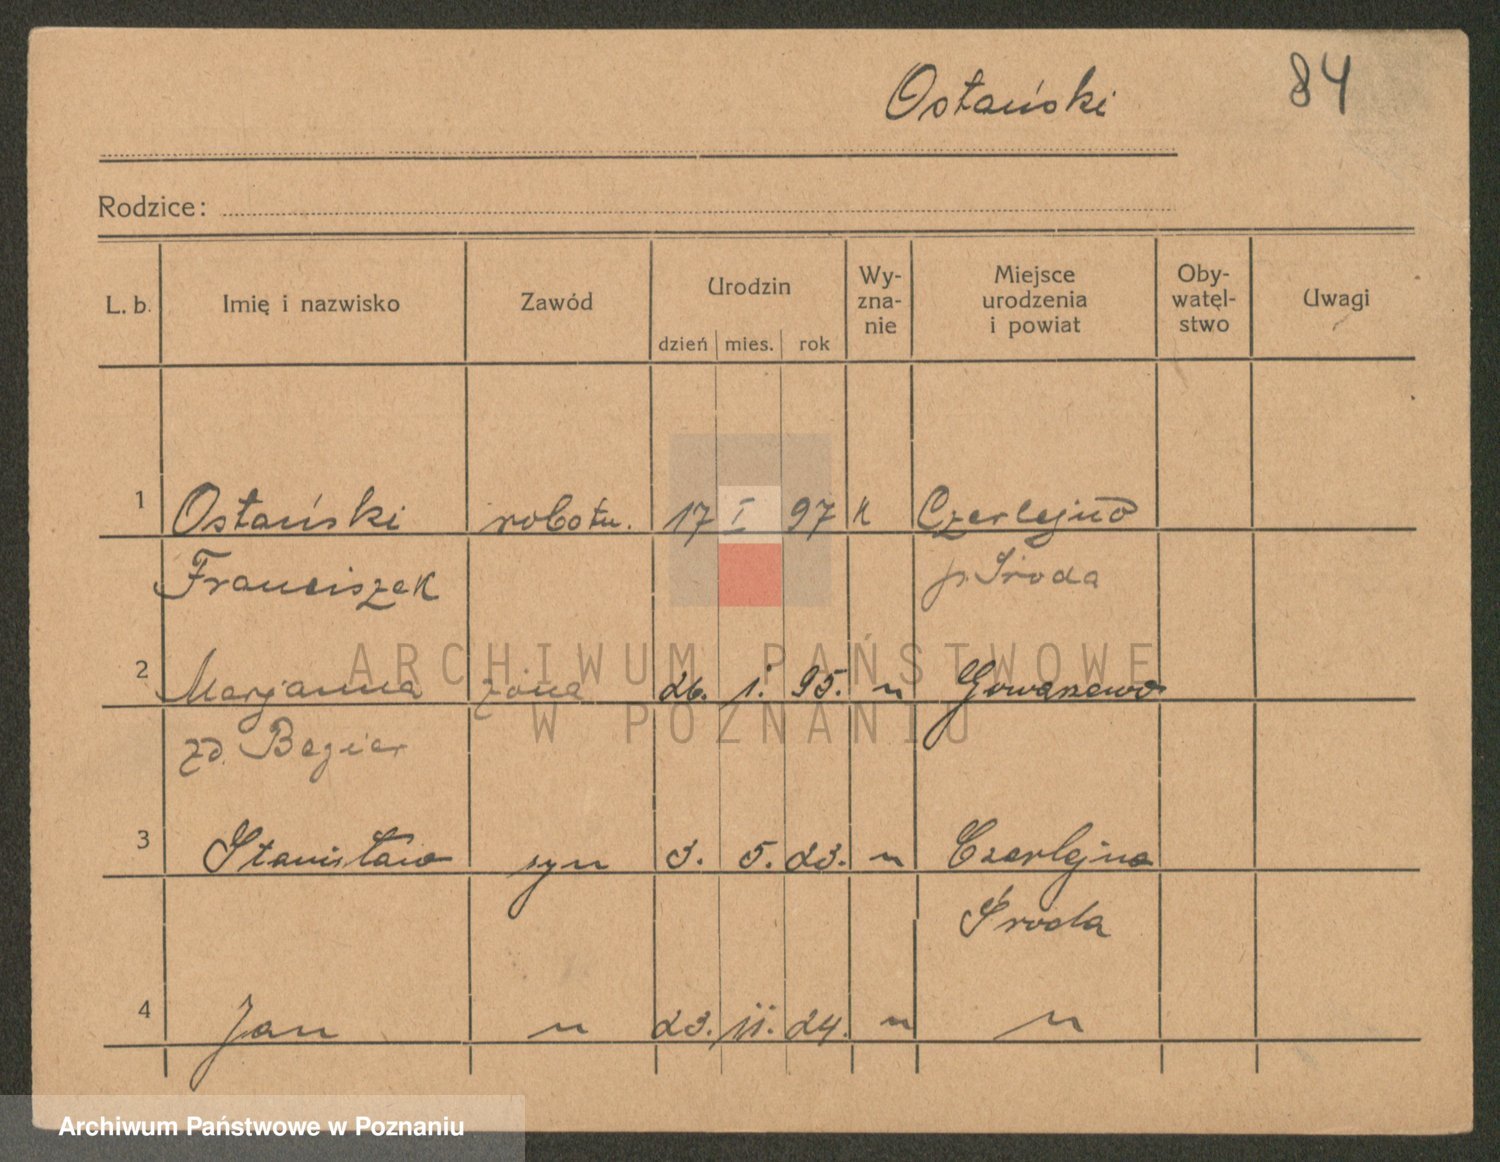 Ostański 84
Rodzice:
L. b. Imię i nazwisko Zawód Urodzin dzień mies. rok Wy-zna-nie Miejsce urodzenia i powiat Oby-watel-stwo Uwagi
1 Ostański robotn. 17 I 97 k Czerlejno
Franciszek p. Środa
2 Marjanna żona 26. 1. 95. " Gowarzewo
zd. Bagier
3 Stanisław syn 3. 5. 23. " Czerlejno
Środa
4 Jan " 23. 11. 24. " "
ARCHIWUM PAŃSTWOWE
W POZNANIU
Archiwum Państwowe w Poznaniu